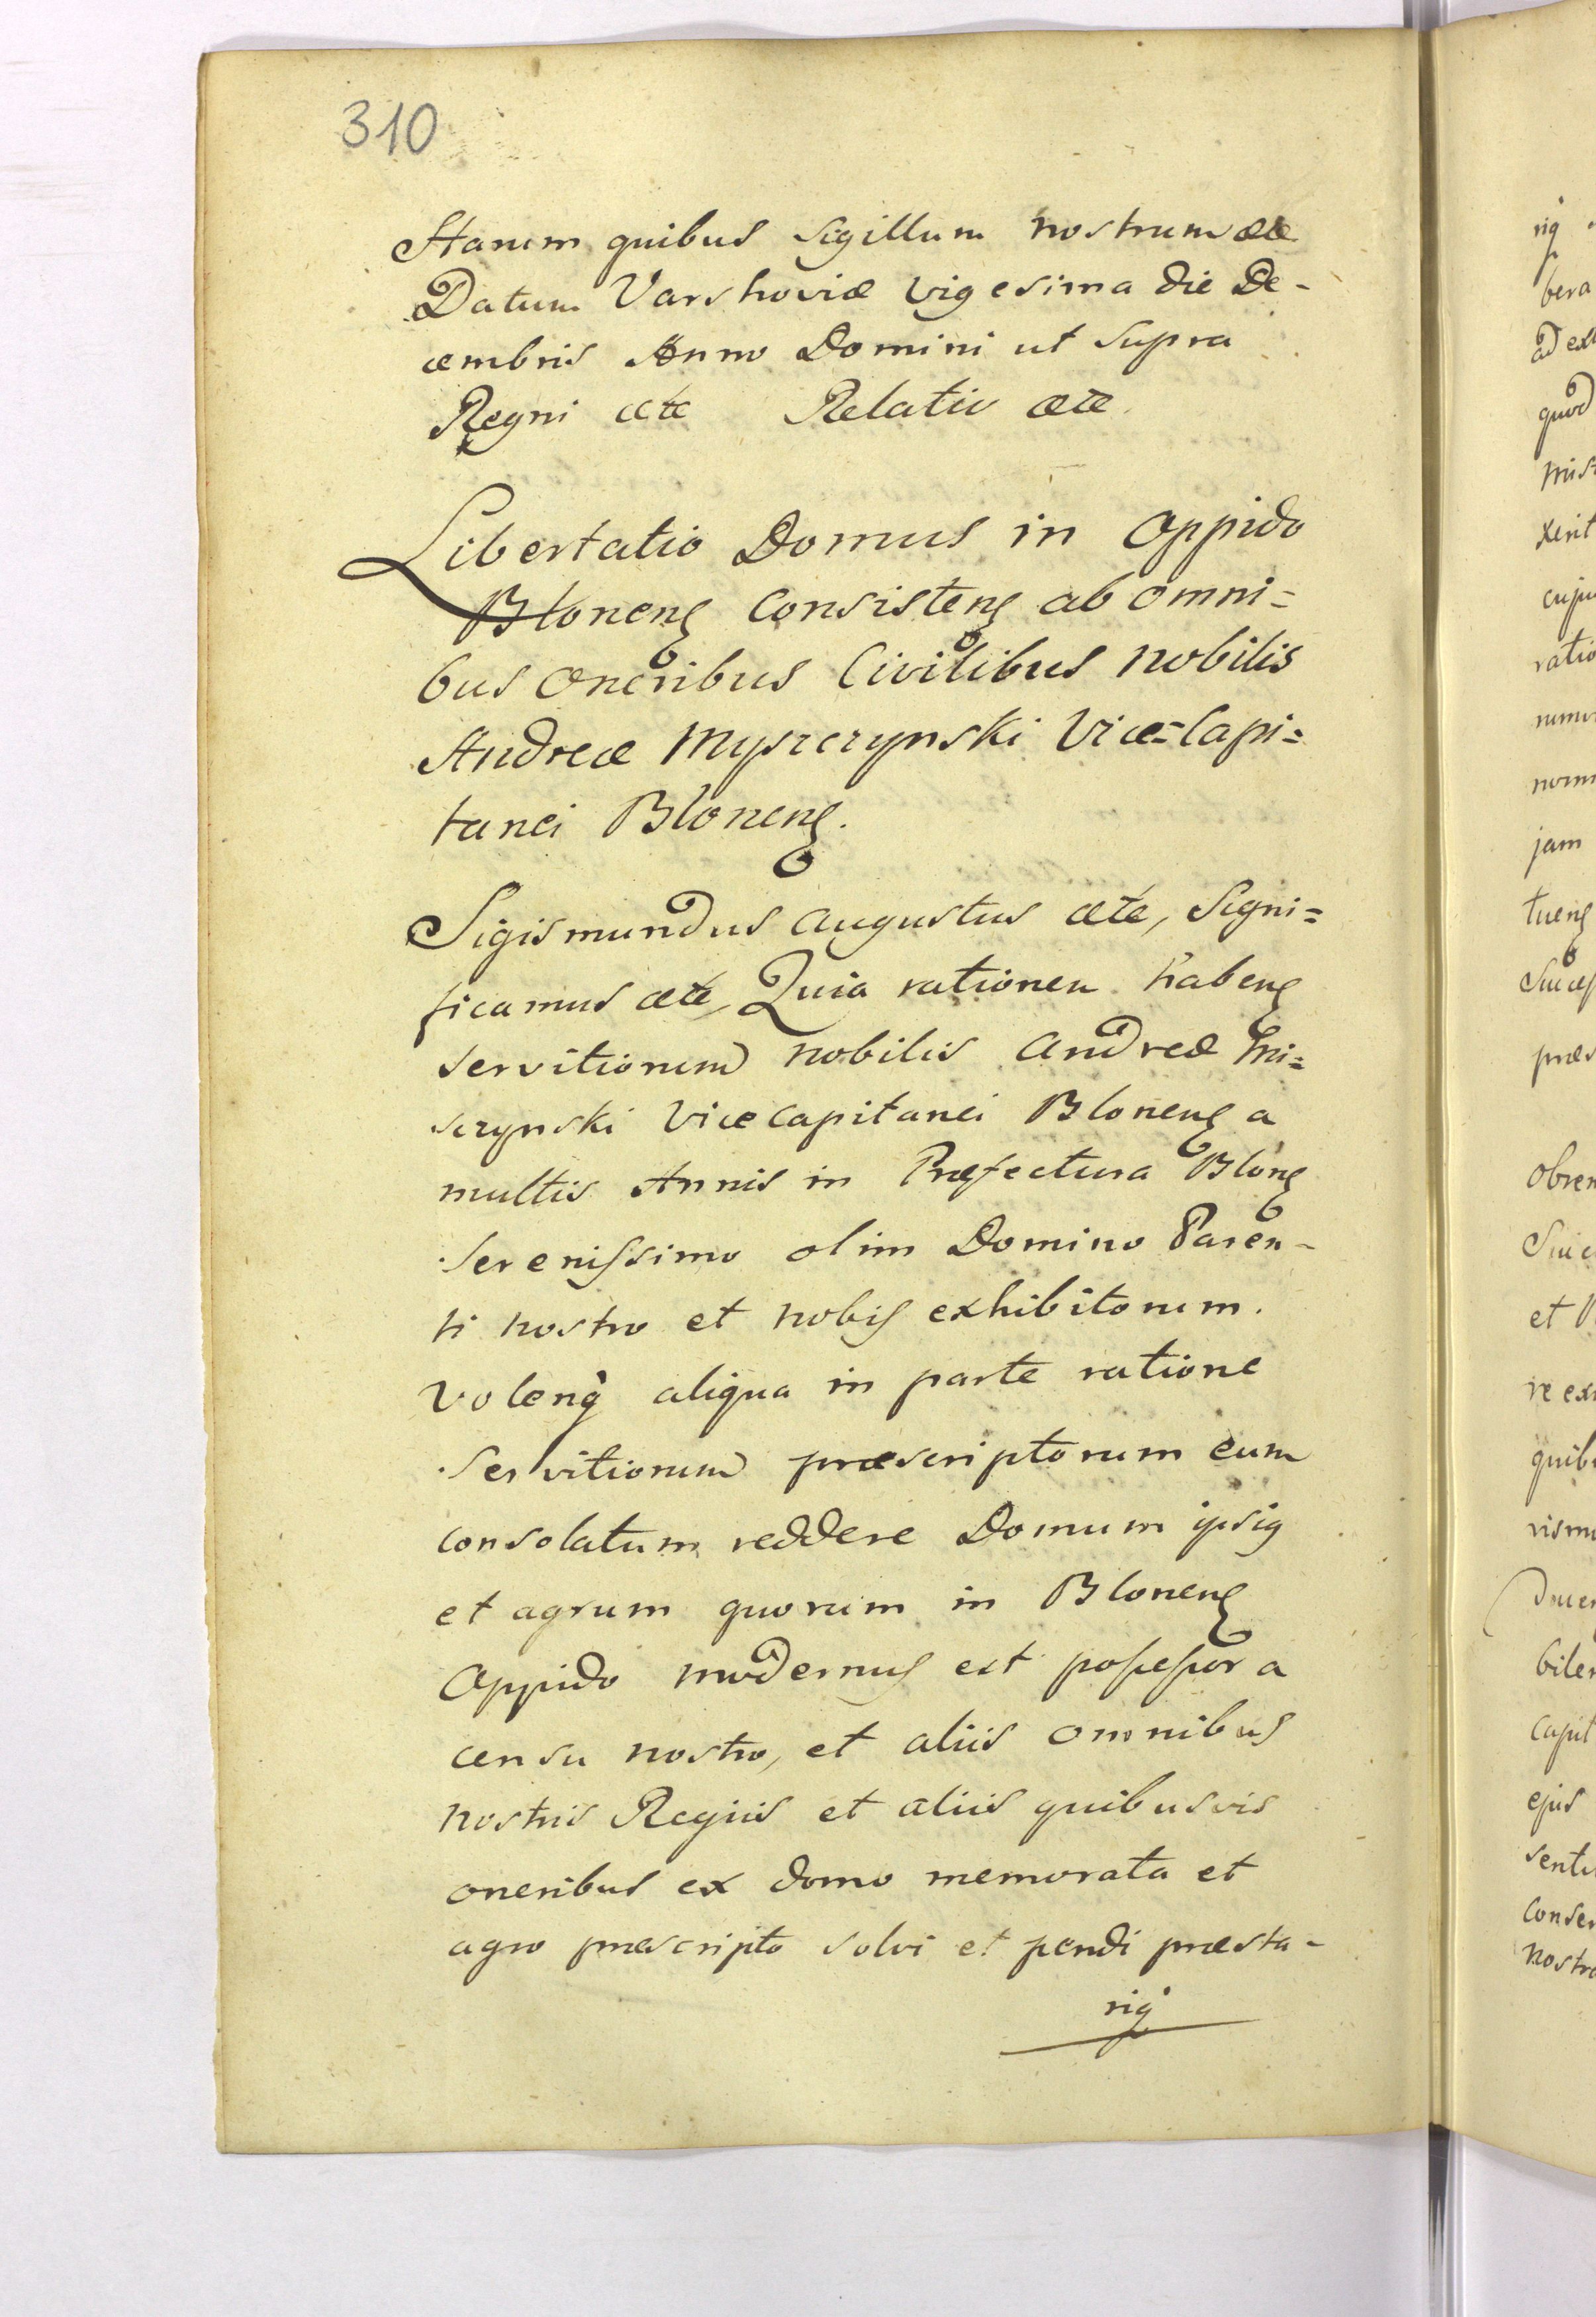 310
Harum quibus sigillum nostrum etc
Datum Varshoviæ vigesima die De-
cembris Anno Domini ut supra
Regni etc Relatio etc
Libertatio Domus in Oppido
Blonenȝ consistenȝ ab omni=
bus oneribus Civilibus nobilis
Andreæ Myszczynski Vice=Capi=
tanei Blonenȝ.
Sigismundus Augustus etc, Signi=
ficamus etc, Quia rationem habenȝ
servitiorum nobilis Andreæ Mi=
sczynski Vice Capitanei Blonenȝ a
multis Annis in Præfectura Blonȝ
Serenissimo olim Domino Paren-
ti nostro et nobis exhibitorum.
Volenq aliqua in parte ratione
Servitiorum præscriptorum eum
consolatum reddere Domum ipsiq
et agrum quorum in Blonenȝ
Oppido modernus est possessor a
censu nostro, et aliis omnibus
nostris Regiis et aliis quibusvis
oneribus ex domo memorata et
agro præscripto solvi et pendi præsta-
riq
riq
bera
ad ex
quod
mis
xerit
cuju
ratio
numi
nom
jam
tuenȝ
Succes
præs
obven
Succ
et
re ex
quib
rism
Ducen
bilem
Capit
ejus
senti
Conse
nostr